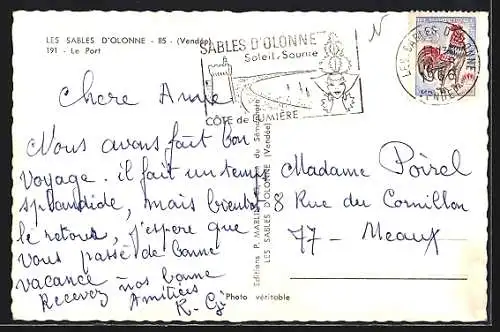 LES SABLES D'OLONNE - 85 - (Vendée)
191 - Le Port
SABLES D'OLONNE
Soleil. Sourire
CÔTE de LUMIÈRE
LES SABLES D'OLONNE
VENDÉE
Chere Anne
Nous avons fait bon
voyage. il fait un temps
splandide, mais bientot
le retour, j'espere que
vous passé de bonne
vacance nos bonne
Recevez Amitiées
R-
Editions P. MARLI
LES SABLES D'OLONNE (Vendée)
Madame Poirel
8 Rue du Cornillon
77 - Meaux
Photo véritable